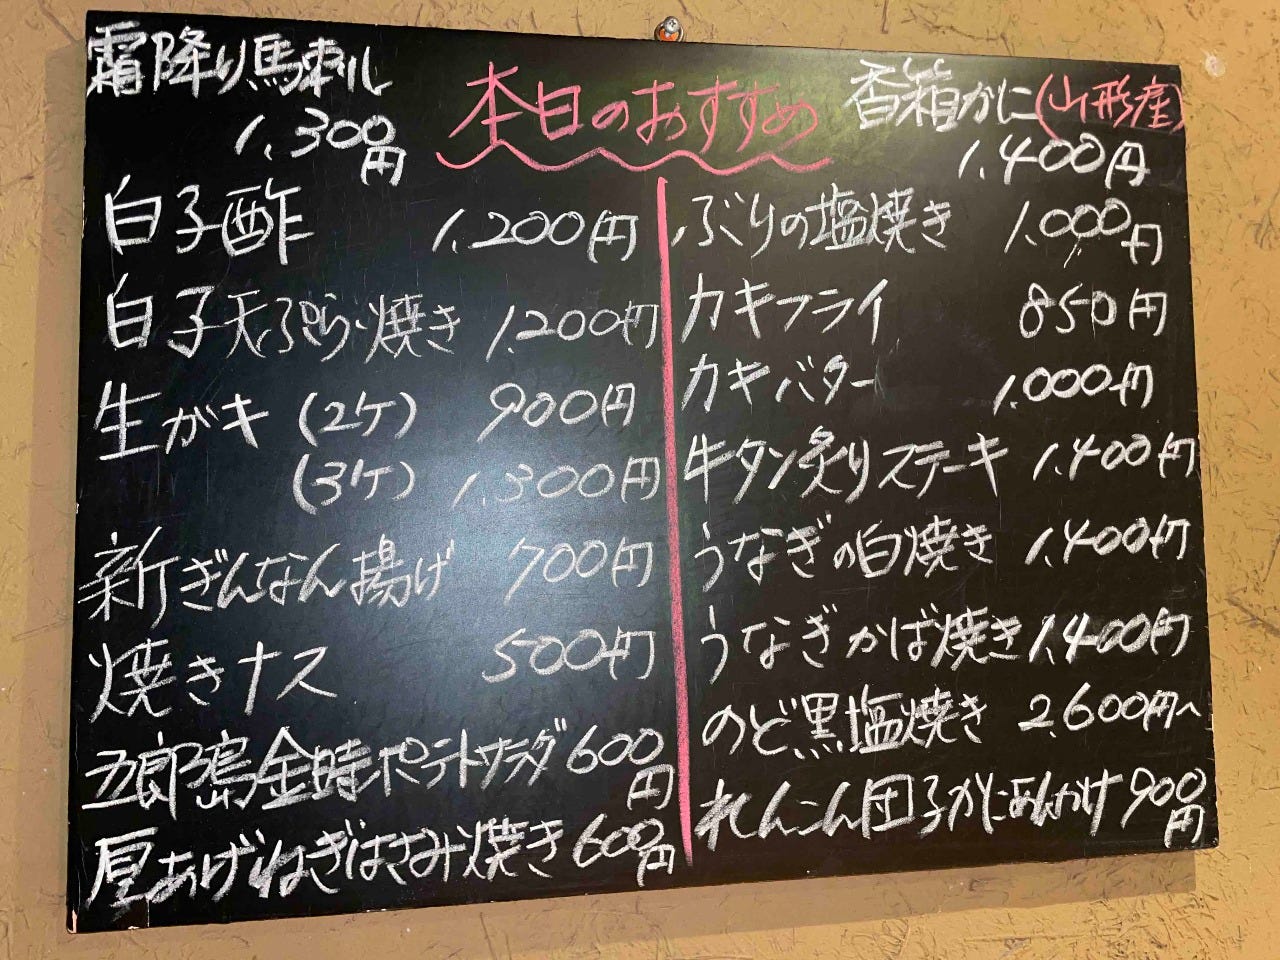 本日のおすすめ
霜降り馬刺し
1,300円
白子酢 1,200円
白子天ぷら・焼き 1,200円
生ガキ (2ケ) 900円
(3ケ) 1,300円
新ぎんなん揚げ 700円
焼きナス 500円
五郎島金時ポテトサラダ 600円
厚あげねぎはさみ焼き 600円
香箱かに(山形産)
1,400円
ぶりの塩焼き 1,000円
カキフライ 850円
カキバター 1,000円
牛タン炙りステーキ 1,400円
うなぎの白焼き 1,400円
うなぎかば焼き 1,400円
のど黒塩焼き 2,600円〜
れんこん団子かにあんかけ 900円